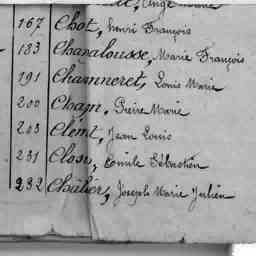 167 Chot, Henri François
183 Chanalousse, Marie François
191 Channeret, Louis Marie
200 Chapn, Pierre Marie
203 Clémt, Jean Louis
231 Closn, Emile Sébastien
232 Châlier, Joseph Marie Julien